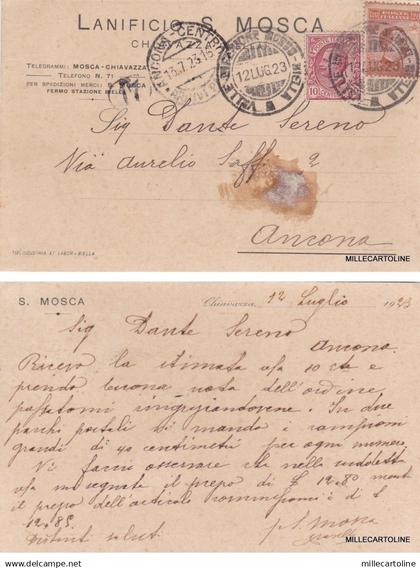 LANIFICIO S. MOSCA
CHIAVAZZA
TELEGRAMMI: MOSCA-CHIAVAZZA
TELEFONO N. 71
PER SPEDIZIONI MERCI: S. MOSCA
FERMO STAZIONE BIELLA
ANCONA-CENTRO
12 LUG 23
BIELLA
10
Sig Dante Sereno
Via Aurelio Saffi 2
Ancona
TIP. INDUSTRIA ET LABOR - BIELLA
MILLECARTOLINE
S. MOSCA
Chiavazza, 12 Luglio 1923
Sig Dante Sereno
Ancona
Ricevo la stimata v/s 10 cte e
prendo buona nota dell'ordine
passatomi ringraziandovene. In due
pacchi postali vi mando i campioni
grandi di 40 centimetri per ogni numero
Vi faccio osservare che nella suddetta
v/s segnate il prezzo di £ 12.80 ment
il prezzo dell'articolo è di £
12.85
Distinti saluti
p S. Mosca
MILLECARTOLINE